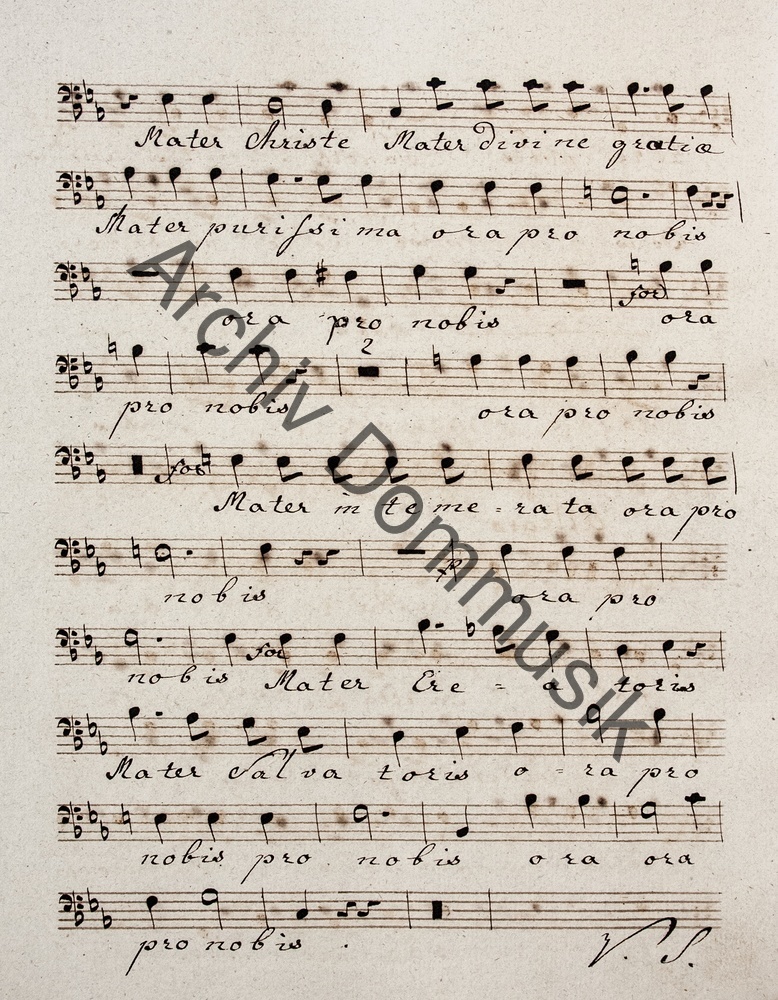 Mater Christe Mater divine gratiæ
Mater purissima ora pro nobis
for
ora pro nobis ora
2
pro nobis ora pro nobis
for
Mater in te me = rata ora pro
p
nobis ora pro
for
nobis Mater Cre = a toris
Mater Salva toris o = ra pro
nobis pro nobis ora ora
pro nobis .
V. S.
Archiv Dommusik